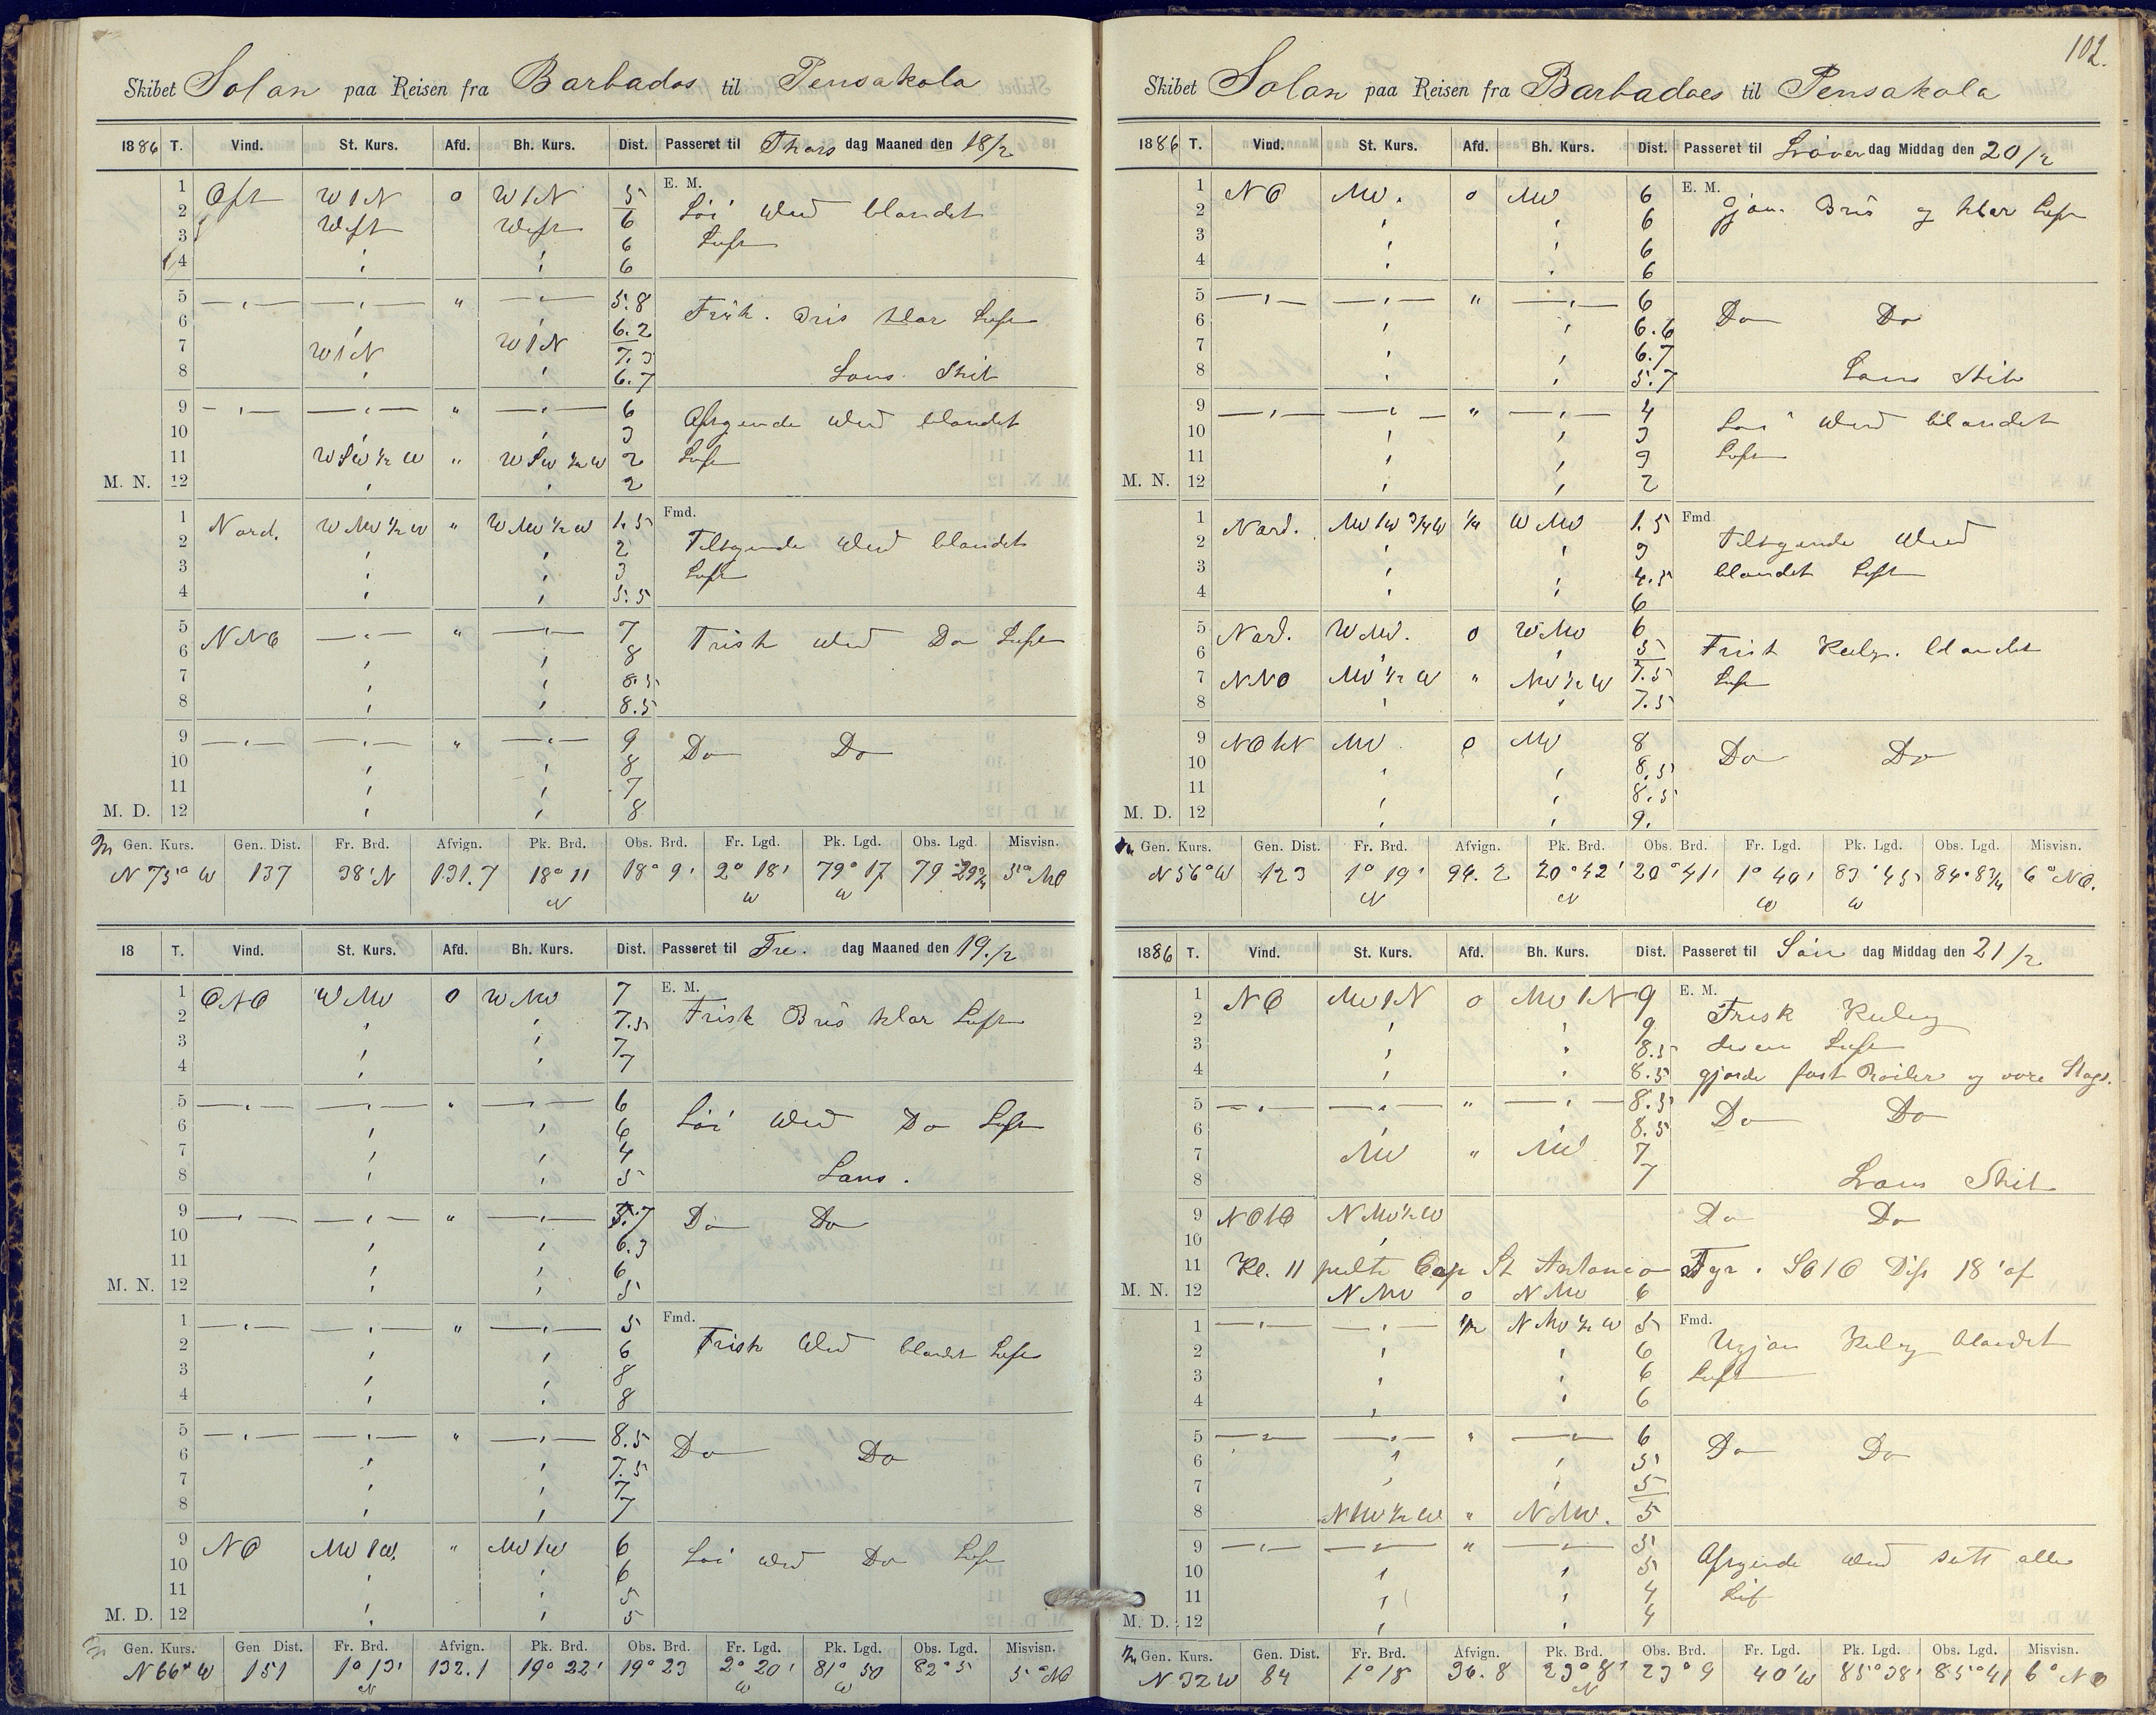 Skibet Solan paa Reisen fra Barbados til Pensakola
1886 T. Vind. St. Kurs. Afd. Bh. Kurs. Dist. Passeret til Thors dag Maaned den 18/2
1 Ost W1N 0 W1N 5 E. M.
2 West West 6 Löi Wind blandet
3 6 Luft
4 6
5 — — " — 5.8
6 6.2 Frisk. Bris klar Luft
7 W1N W1N 7.3
8 6.7 Lans. Skib
9 — — " — 6 Aftagende Wind blandet
10 3
11 WSW ½ W " WSW ½ W 2 Luft
M. N. 12 2
1 Nord. WNW ½ W " WNW ½ W 1.5 Fmd.
2 2 Tiltagende Wind blandet
3 3 Luft
4 5.5
5 NNO — " — 7 Frisk Wind Do Luft
6 8
7 8.5
8 8.5
9 — — " — 9 Do Do
10 8
11 7
M. D. 12 8
Gen. Kurs. Gen. Dist. Fr. Brd. Afvign. Pk. Brd. Obs. Brd. Fr. Lgd. Pk. Lgd. Obs. Lgd. Misvisn.
N 75° W 137 38' N 131.7 18° 11 N 18° 9' 2° 18' W 79° 17 W 79 29¾ 5° NO
18 T. Vind. St. Kurs. Afd. Bh. Kurs. Dist. Passeret til Fre. dag Maaned den 19./2
1 ONO WNW 0 WNW 7 E. M.
2 7.5 Frisk Bris klar Luft
3 7
4 7
5 — — " — 6
6 6 Löi Wind Do Luft
7 4
8 5 Lans.
9 — — " — 5.7 Do Do
10 6.3
11 6
M. N. 12 5
1 — — " — 5 Fmd.
2 6 Frisk Wind blandet Luft
3 8
4 8
5 — — " — 8.5
6 7.5 Do Do
7 7
8 7
9 NO NW1W. " NW1W 6
10 6 Löi Wind Do Luft
11 5
M. D. 12 5
Gen. Kurs. Gen Dist. Fr. Brd. Afvign. Pk. Brd. Obs. Brd. Fr. Lgd. Pk. Lgd. Obs. Lgd. Misvisn.
N 66° W 151 1° 13' N 132.1 19° 22' 19° 23 2° 20' W 81° 50 W 82° 5 5° NO
102.
Skibet Solan paa Reisen fra Barbadoes til Pensakola
1886 T. Vind. St. Kurs. Afd. Bh. Kurs. Dist. Passeret til Löver dag Middag den 20/2
1 NO NW. 0 NW 6 E. M.
2 6 gjön. Bris og klar Luft
3 6
4 6
5 — — " — 6
6 6.6 Do Do
7 6.7
8 5.7 Lans Skib
9 — — " — 4
10 3 Löi Wind blandet
11 3 Luft
M. N. 12 2
1 Nord. NW1W ¾W ¼ WNW 1.5 Fmd
2 3 Tiltagende Wind
3 4.5 blandet Luft
4 6
5 Nord. WNW. 0 WNW 6
6 5 Frisk Kuling. blandet
7 NNO NW ½ W " NW ½ W 7.5 Luft
8 7.5
9 NOhN NW 0 NW 8 Do Do
10 8.5
11 8.5
M. D. 12 9.
Gen. Kurs. Gen. Dist. Fr. Brd. Afvign. Pk. Brd. Obs. Brd. Fr. Lgd. Pk. Lgd. Obs. Lgd. Misvisn.
N 56° W 123 1° 19' N 94.2 20° 42' N 20° 41' 1° 40' W 83° 45 W 84° 8¾ 6° NO.
1886 T. Vind. St. Kurs. Afd. Bh. Kurs. Dist. Passeret til Sön dag Middag den 21/2
1 NO NW1N 0 NW1N 9 E. M.
2 9 Frisk Kuling
3 8.5 disen Luft
4 8.5 gjorde fast Roiler og vore Stags.
5 — — " — 8.5 Do Do
6 8.5
7 NW " NW 7
8 7 Lans Skib
9 NO1O NNW½W Do Do
10
11 Kl. 11 peilte Cap St Antonio Fyr. SO1O Dist 18' af
M. N. 12 NNW 0 NNW 6
1 — — ½ NNW ½ W 5 Fmd.
2 6 Ugjön Kuling blandet
3 6 Luft
4 6
5 — — " — 6
6 5 Do Do
7 5
8 NNW ½ W " NNW. 5
9 — — " — 5
10 5 Aftagende Wind sett alle
11 4
M. D. 12 4
Gen. Kurs. Gen. Dist. Fr. Brd. Afvign. Pk. Brd. Obs. Brd. Fr. Lgd. Pk. Lgd. Obs. Lgd. Misvisn.
N 32 W 84 1° 18 36.8 23° 8' N 23° 9 40' W 85° 38' 85° 41 6° NO